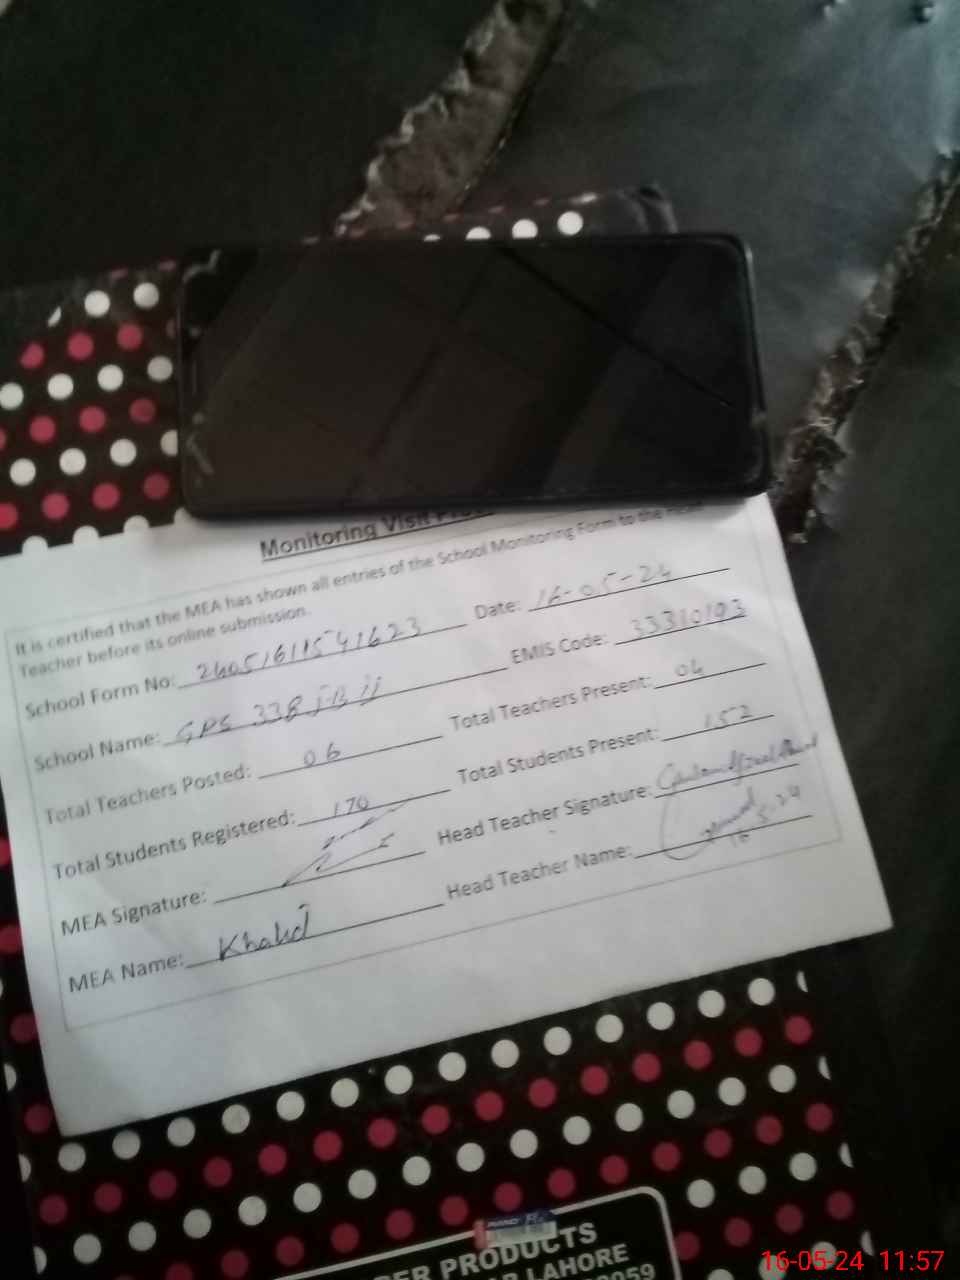 Monitoring Visit
It is certified that the MEA has shown all entries of the School Monitoring Form to the Head
Teacher before its online submission.
School Form No: 24051611541623 Date: 16-05-24
School Name: GPS 338 J-B II EMIS Code: 33310193
Total Teachers Posted: 06 Total Teachers Present: 04
Total Students Registered: 170 Total Students Present: 152
MEA Signature: Head Teacher Signature:
MEA Name: Khalid Head Teacher Name: 16-5-24
PRODUCTS
LAHORE
0059
16-05-24 11:57